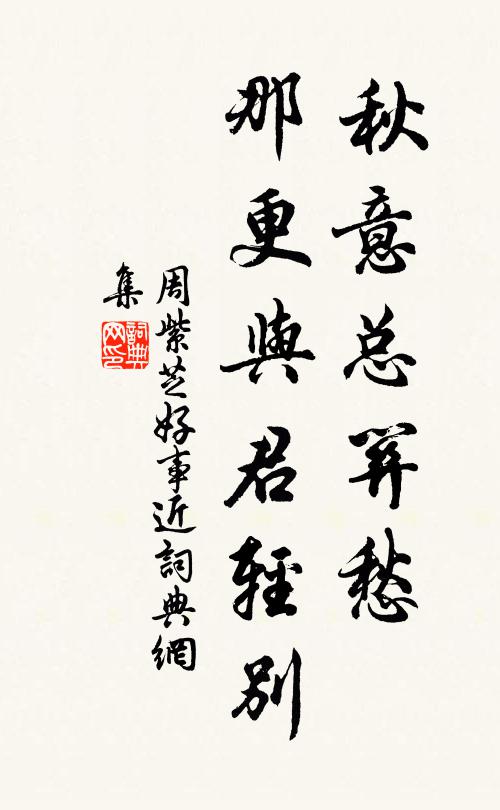 秋意总關愁
那更與君輕别
周紫芝好事近詞典網
集
詞典
网印